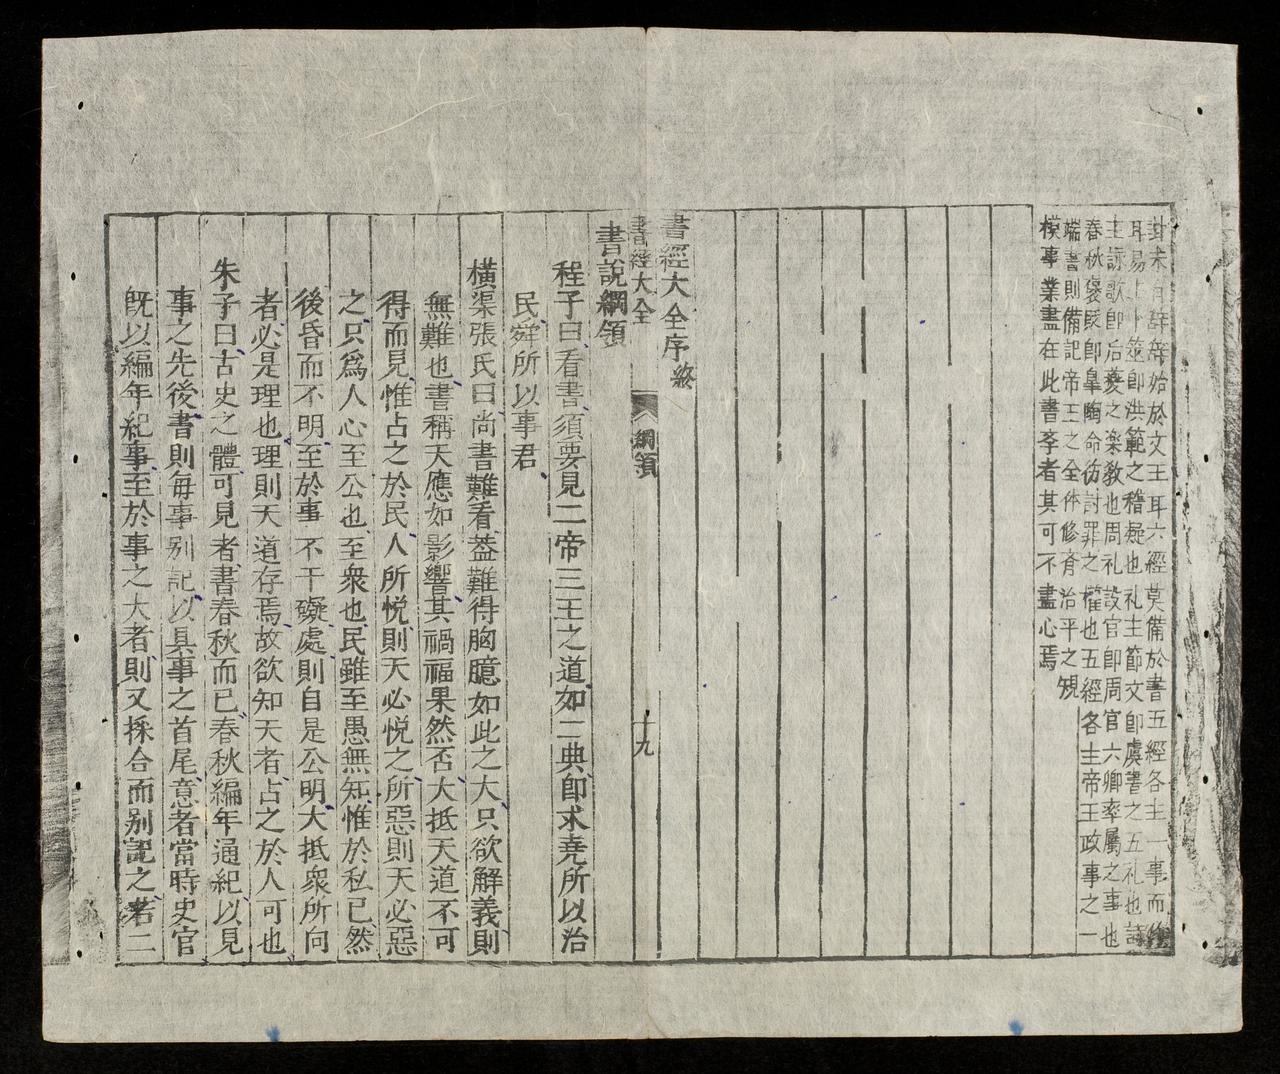 卦未有辭辭始於文王耳六經莫備於書五經各主一事而作
耳易卜筮卽洪範之稽疑也礼主節文卽虞書之五礼也詩
主詠歌卽后夔之楽敎也周礼設官卽周官六卿率屬之事也
春秋褒貶卽皐陶命德討罪之權也五經各主帝王政事之一
端書則備記帝王之全体修斉治平之規
模事業盡在此書学者其可不盡心焉
書經大全序終
書經大全 綱領 十九
書說綱領
程子曰看書須要見二帝三王之道如二典卽求堯所以治
民舜所以事君
橫渠張氏曰尚書難看葢難得胸臆如此之大只欲解義則
無難也書稱天應如影響其禍福果然否大抵天道不可
得而見惟占之於民人所悅則天必悅之所惡則天必惡
之只爲人心至公也至衆也民雖至愚無知惟於私已然
後昏而不明至於事不干礙處則自是公明大抵衆所向
者必是理也理則天道存焉故欲知天者占之於人可也
朱子曰古史之體可見者書春秋而已春秋編年通紀以見
事之先後書則每事別記以具事之首尾意者當時史官
旣以編年紀事至於事之大者則又採合而別記之若二